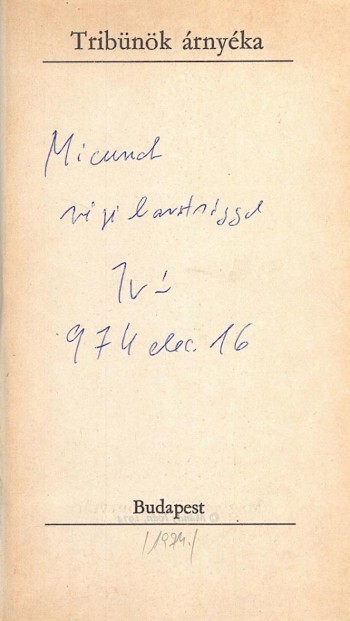 Tribünök árnyéka
Micunak
régi barátsággal
Iván
974 dec. 16
Budapest
/1974./